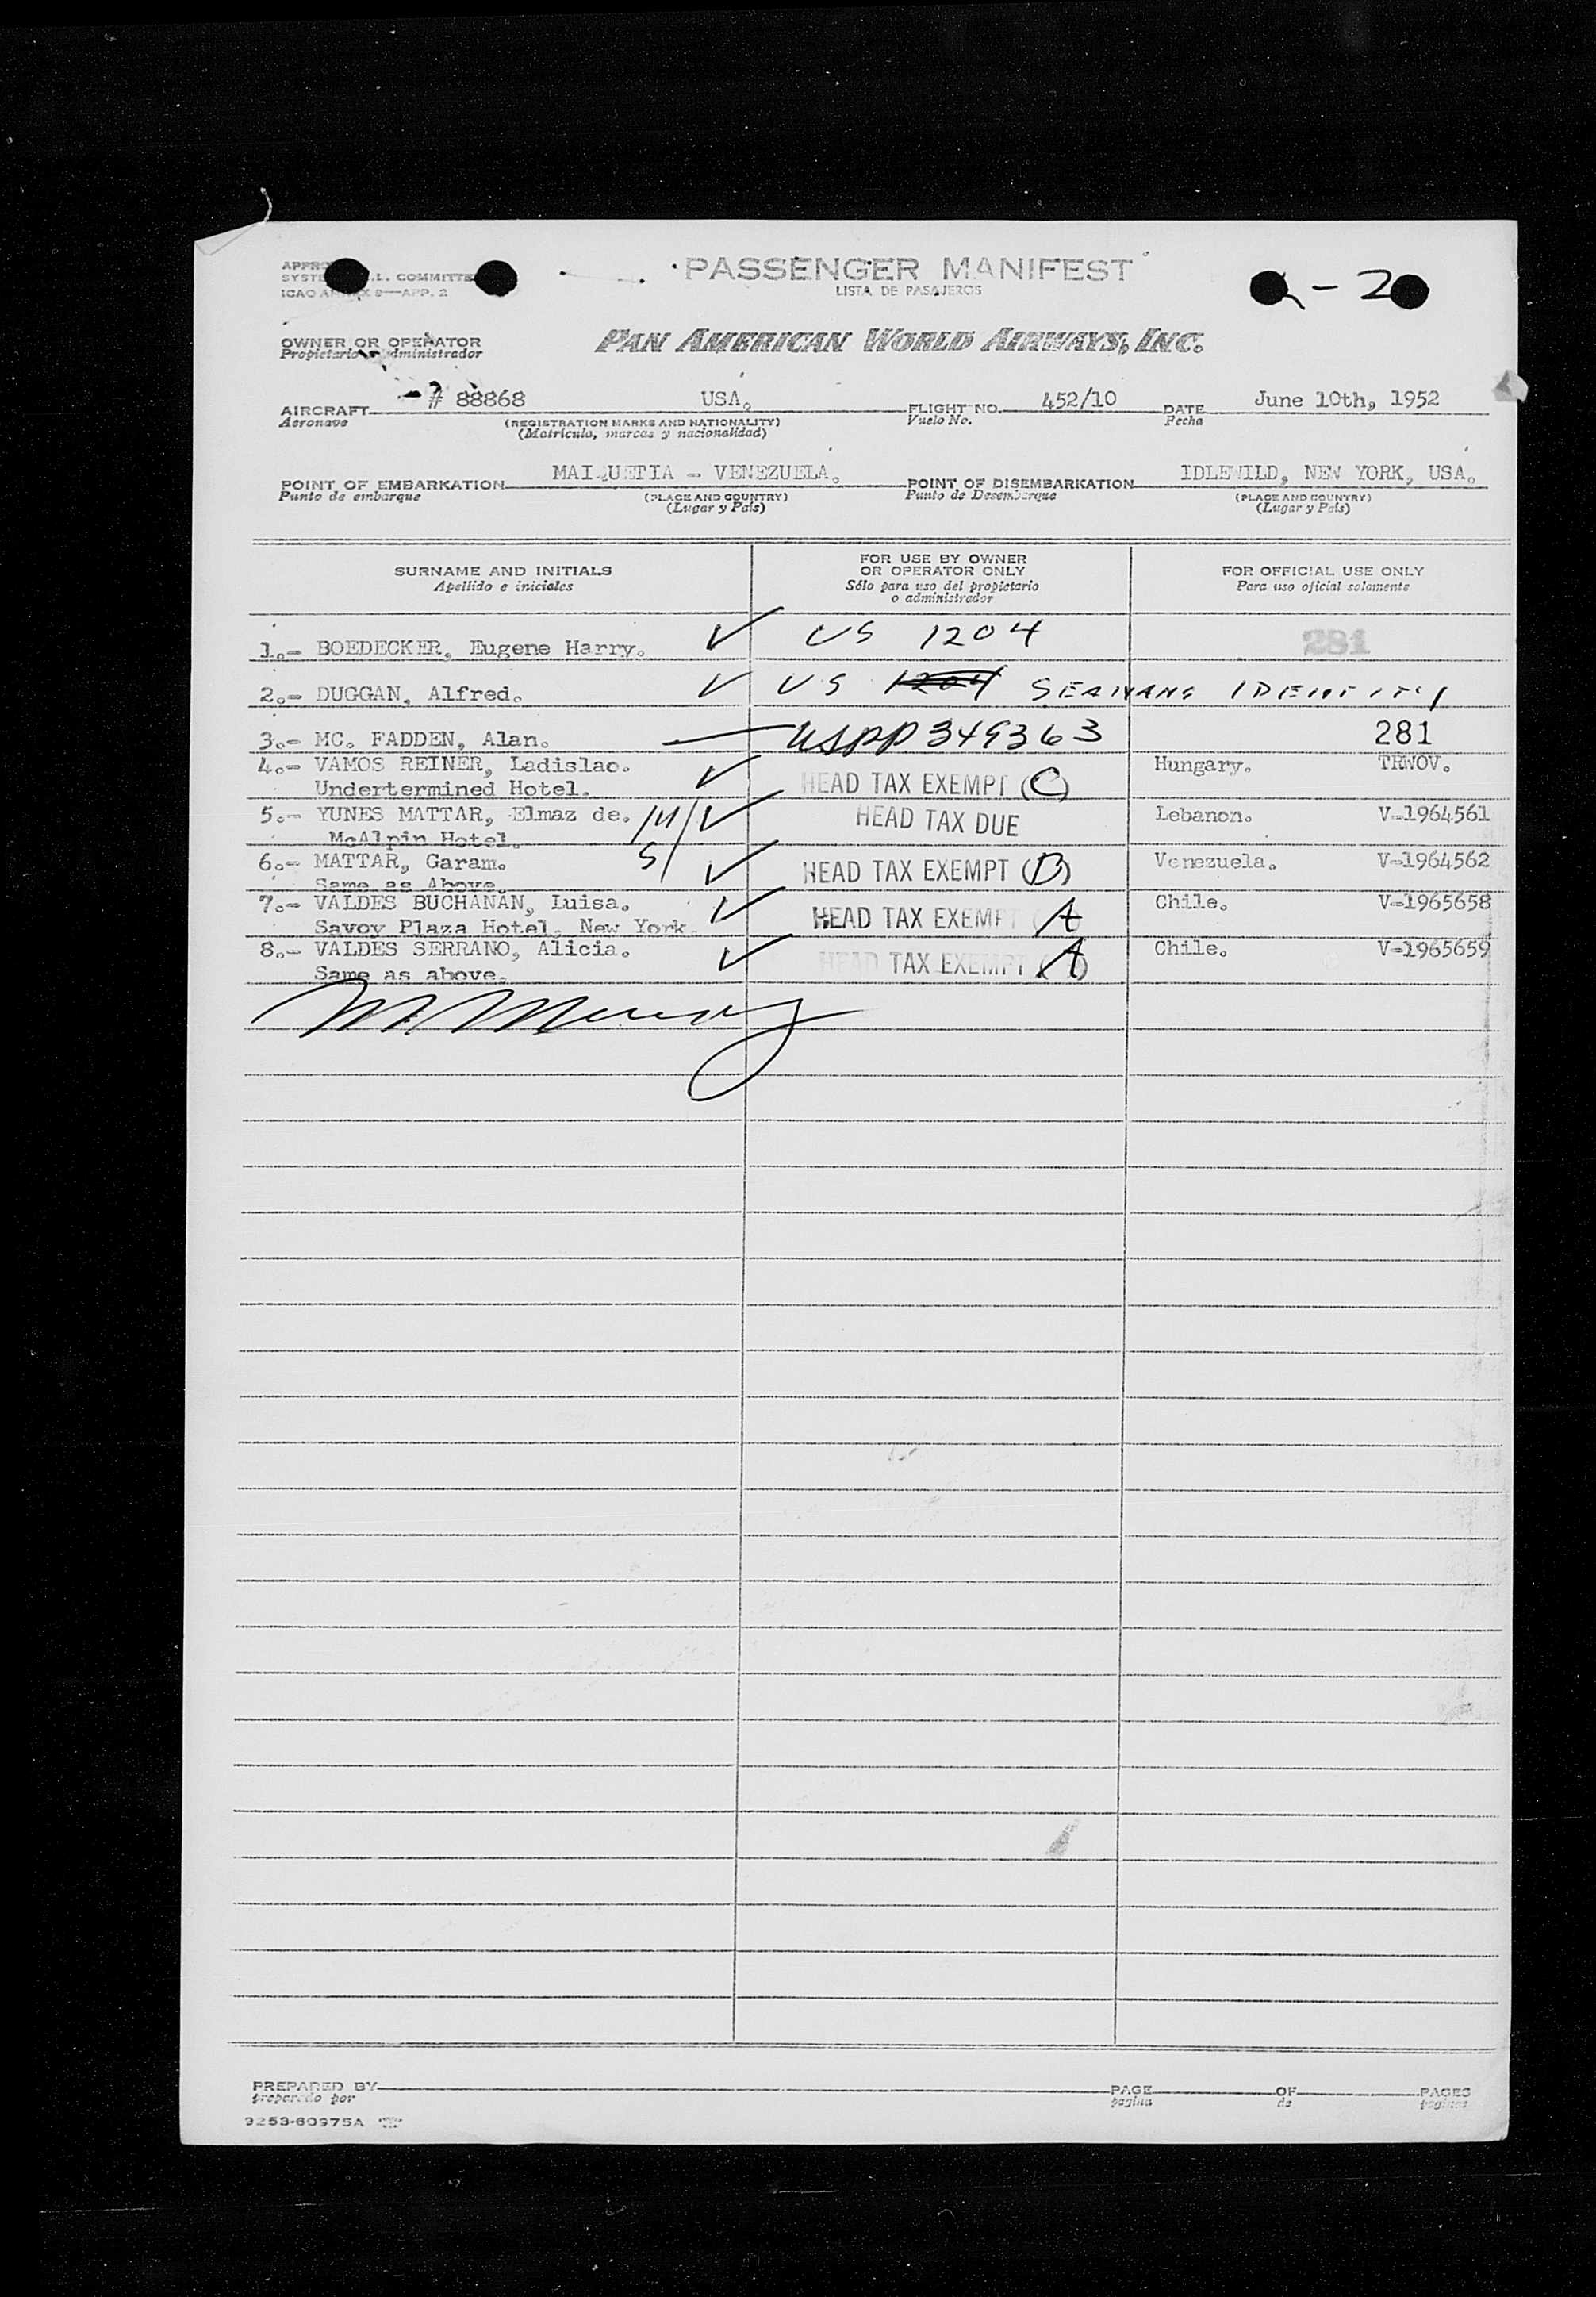 PASSENGER MANIFEST
LISTA DE PASAJEROS
COMMITTEE
ICAO 9—APP. 2
- 2
OWNER OR OPERATOR
Propietario
PAN AMERICAN WORLD AIRWAYS, INC.
AIRCRAFT # 88868 USA. FLIGHT NO. 452/10 DATE June 10th, 1952
Aeronave (REGISTRATION MARKS AND NATIONALITY) Vuelo No. Fecha
(Matrícula, marcas y nacionalidad)
POINT OF EMBARKATION MAIQUETIA - VENEZUELA. POINT OF DISEMBARKATION IDLEWILD, NEW YORK, USA.
Punto de embarque (PLACE AND COUNTRY) Punto de Desembarque (PLACE AND COUNTRY)
(Lugar y País) (Lugar y País)
SURNAME AND INITIALS
Apellido e iniciales
FOR USE BY OWNER
OR OPERATOR ONLY
Sólo para uso del propietario
o administrador
FOR OFFICIAL USE ONLY
Para uso oficial solamente
1.- BOEDECKER, Eugene Harry. ✓ US 1204 281
2.- DUGGAN, Alfred. ✓ US 1204 SEAMANS IDENTITY
3.- MC. FADDEN, Alan. — USPP 349363 281
4.- VAMOS REINER, Ladislao. ✓ HEAD TAX EXEMPT (C) Hungary. TRWOV.
Undertermined Hotel.
5.- YUNES MATTAR, Elmaz de. M/ ✓ HEAD TAX DUE Lebanon. V-1964561
McAlpin Hotel.
6.- MATTAR, Garam. S/ ✓ HEAD TAX EXEMPT (B) Venezuela. V-1964562
Same as Above.
7.- VALDES BUCHANAN, Luisa. ✓ HEAD TAX EXEMPT (A) Chile. V-1965658
Savoy Plaza Hotel, New York.
8.- VALDES SERRANO, Alicia. ✓ HEAD TAX EXEMPT (A) Chile. V-1965659
Same as above.
PREPARED BY PAGE OF PAGES
preparado por página de páginas
9253-60975A